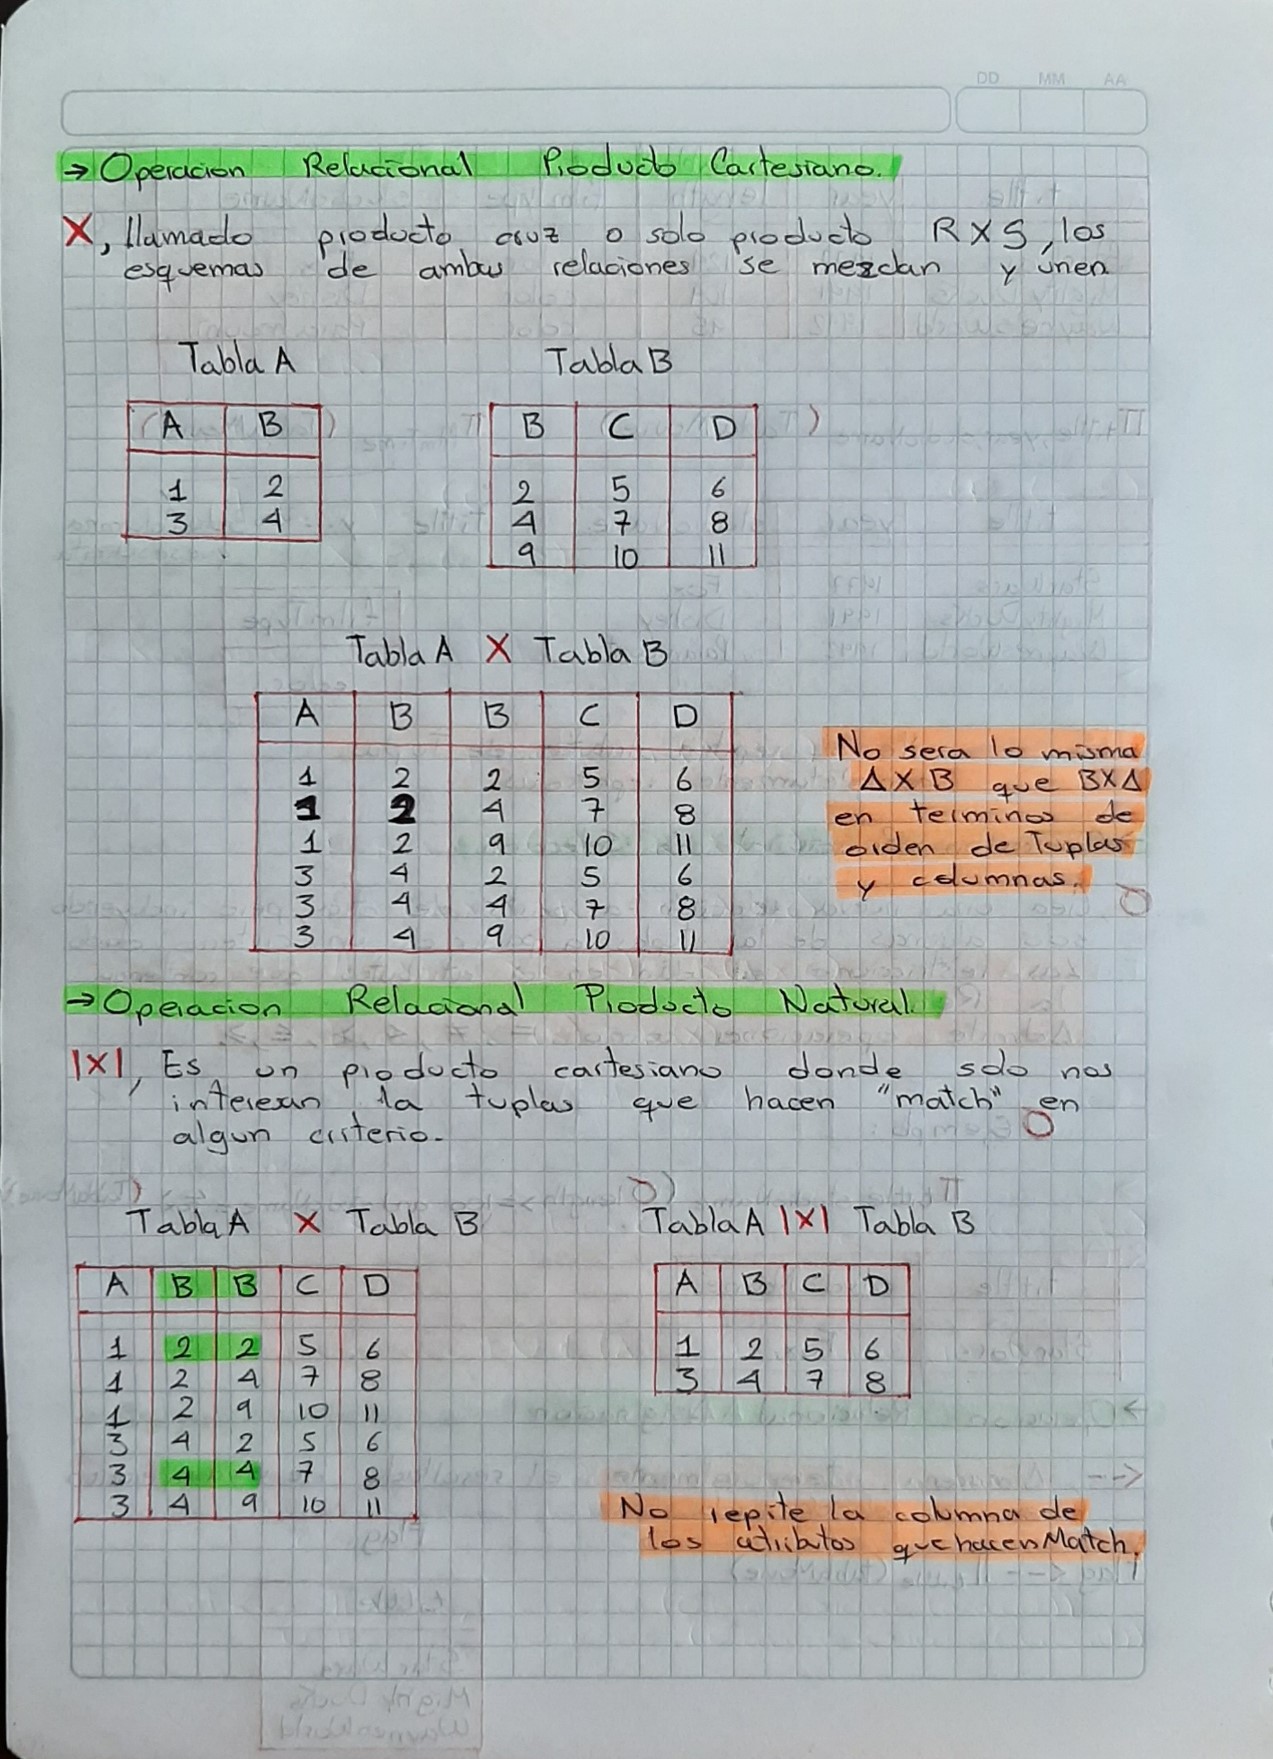 DD MM AA
→ Operacion Relacional Producto Cartesiano.
X, llamado producto cruz o solo producto R X S, los
esquemas de ambas relaciones se mezclan y unen
Tabla A Tabla B
A B
1 2
3 4
B C D
2 5 6
4 7 8
9 10 11
Tabla A X Tabla B
A B B C D
1 2 2 5 6
1 2 4 7 8
1 2 9 10 11
3 4 2 5 6
3 4 4 7 8
3 4 9 10 11
No sera lo misma
A X B que B X A
en terminos de
orden de Tuplas
y columnas.
→ Operacion Relacional Producto Natural.
|X|, Es un producto cartesiano donde solo nos
interesan la tuplas que hacen "match" en
algun criterio.
Tabla A X Tabla B
A B B C D
1 2 2 5 6
1 2 4 7 8
1 2 9 10 11
3 4 2 5 6
3 4 4 7 8
3 4 9 10 11
Tabla A |X| Tabla B
A B C D
1 2 5 6
3 4 7 8
No repite la columna de
los atributos que hacen Match.